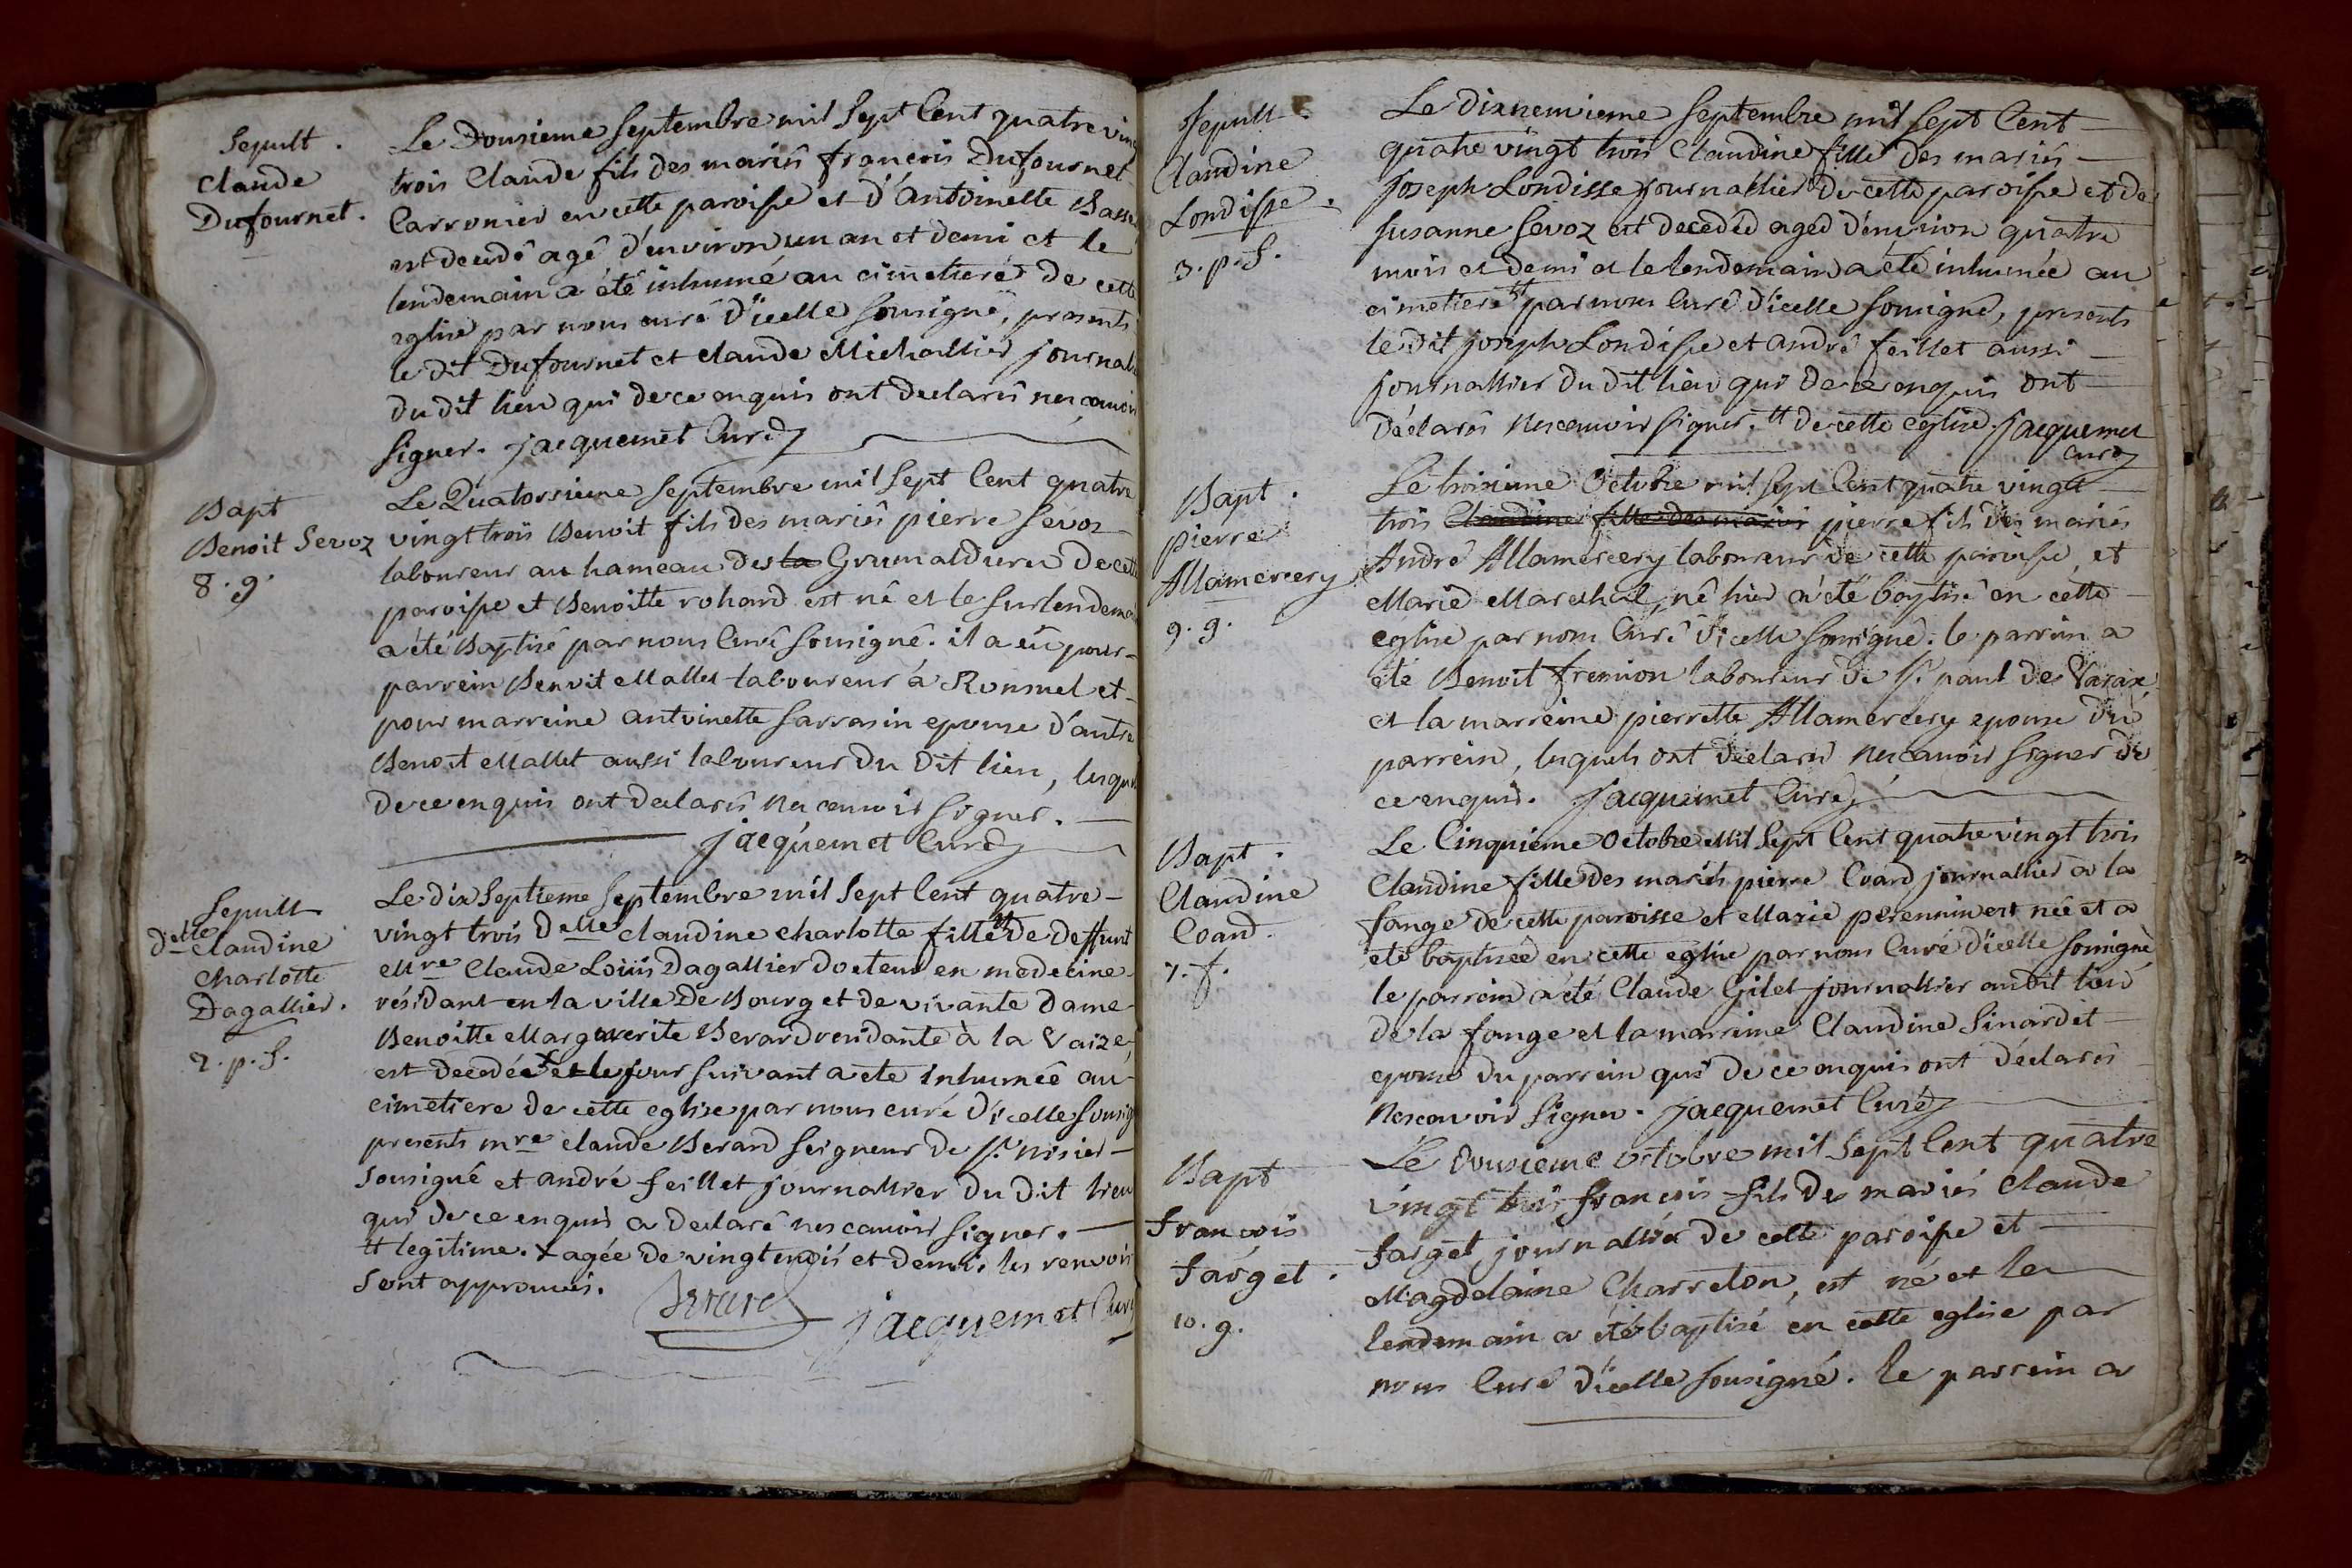 Sepult.
Claude
Dufournet.
Le Dousieme Septembre mil Sept Cent quatre ving
trois Claude fils des mariés françois Dufournet
Carronier en cette paroisse et d'Antoinette Basse
est decedé agé d'environ un an et demi et le
lendemain a été inhumé au cimetiere de cette
eglise par nous curé d'icelle sousigné, presents
le dit Dufournet et claude Michallier journal
du dit lieu qui de ce enquis ont declarés ne scavoir
signer. jacquemet Curé
Bapt
Benoit Sevoz
8. g.
Le Quatorsieme Septembre mil Sept Cent quatre
vingt trois Benoit fils des mariés pierre Sevoz
laboureur au hameau des la Grumalduru de cette
paroisse et Benoitte rohard est né et le surlendemai
a été Baptisé par nous Curé sousigné. il a eû pour
parrein Benoit Mallet laboureur à Ronsuel et
pour marreine antoinette Sarrasin epouse d'autre
Benoit Mallet aussi laboureur du dit lieu, lesquel
de ce enquis ont declarés ne scavoir signer.
jacquemet Curé
Sepult
d.elle Claudine
Charlotte
Dagallier.
2. p. S.
Le dix Septieme Septembre mil Sept Cent quatre
vingt trois D.elle claudine charlotte fille tt de deffunt
M.re Claude Loüis Dagallier docteur en medecine
résidant en la ville de Bourg et de vivante dame
Benoitte Marguerite Berard residante à la Vaize
est decedée x et le jour suivant a ete inhumée au
cimetiere de cette eglise par nous curé d'icelle sousig
presents m.re claude Berard seigneur de St. nisier
sousigné et andré feillet journallier du dit lieu
qui de ce enquis a declaré ne scavoir signer.
tt legitime. x agée de vingt mois et demi. les renvois
sont approuvés.
Berard jacquemet Curé
Sepult.
Claudine
Londisse.
3. p. S.
Le dixneuvieme Septembre mil Sept Cent
quatre vingt trois Claudine fille des mariés
joseph Londisse journallier de cette paroisse et de
Susanne Sevoz est decedée aged d'environ quatre
mois et demi et le lendemain a été inhumée au
cimetiere tt par nous Curé d'icelle sousigné, presents
le dit joseph Londisse et andré feillet aussi
journallier du dit lieu qui de ce enquis ont
déclarés ne scavoir signer. tt de cette eglise. jacquemet
curé
Bapt.
pierre
Allamercery
9. g.
Le troisieme Octobre mil Sept Cent quatre vingt
trois Claudine fille des mariés pierre fils des mariés
André Allamercery laboureur de cette paroisse, et
Marie Mareschal, né hier a été baptisé en cette
eglise par nous Curé d'icelle sousigné. le parrein a
été Benoit fremion laboureur de St. paul de Varax
et la marreine pierrette Allamercery epouse du
parrein, lesquels ont declaré ne scavoir signer de
ce enquis. jacquemet Curé
Bapt.
Claudine
Coard.
7. f.
Le Cinquieme Octobre Mil Sept Cent quatre vingt trois
Claudine fille des mariés pierre Coard journallier à la
fange de cette paroisse et Marie perennin est née et a
été baptisée en cette eglise par nous Curé d'icelle sousigné
le parrein a été Claude Gilet journallier au dit lieu
de la fange et la marreine Claudine Sinardet
epouse du parrein qui de ce enquis ont déclarés
ne scavoir signer. jacquemet Curé
Bapt
François
farget.
10. g.
Le Dousieme octobre mil Sept Cent quatre
vingt trois françois fils des mariés Claude
farget journallier de cette paroisse et
Magdelaine Charreton, est né et le
lendemain a été baptisé en cette eglise par
nous Curé d'icelle sousigné. le parrein a